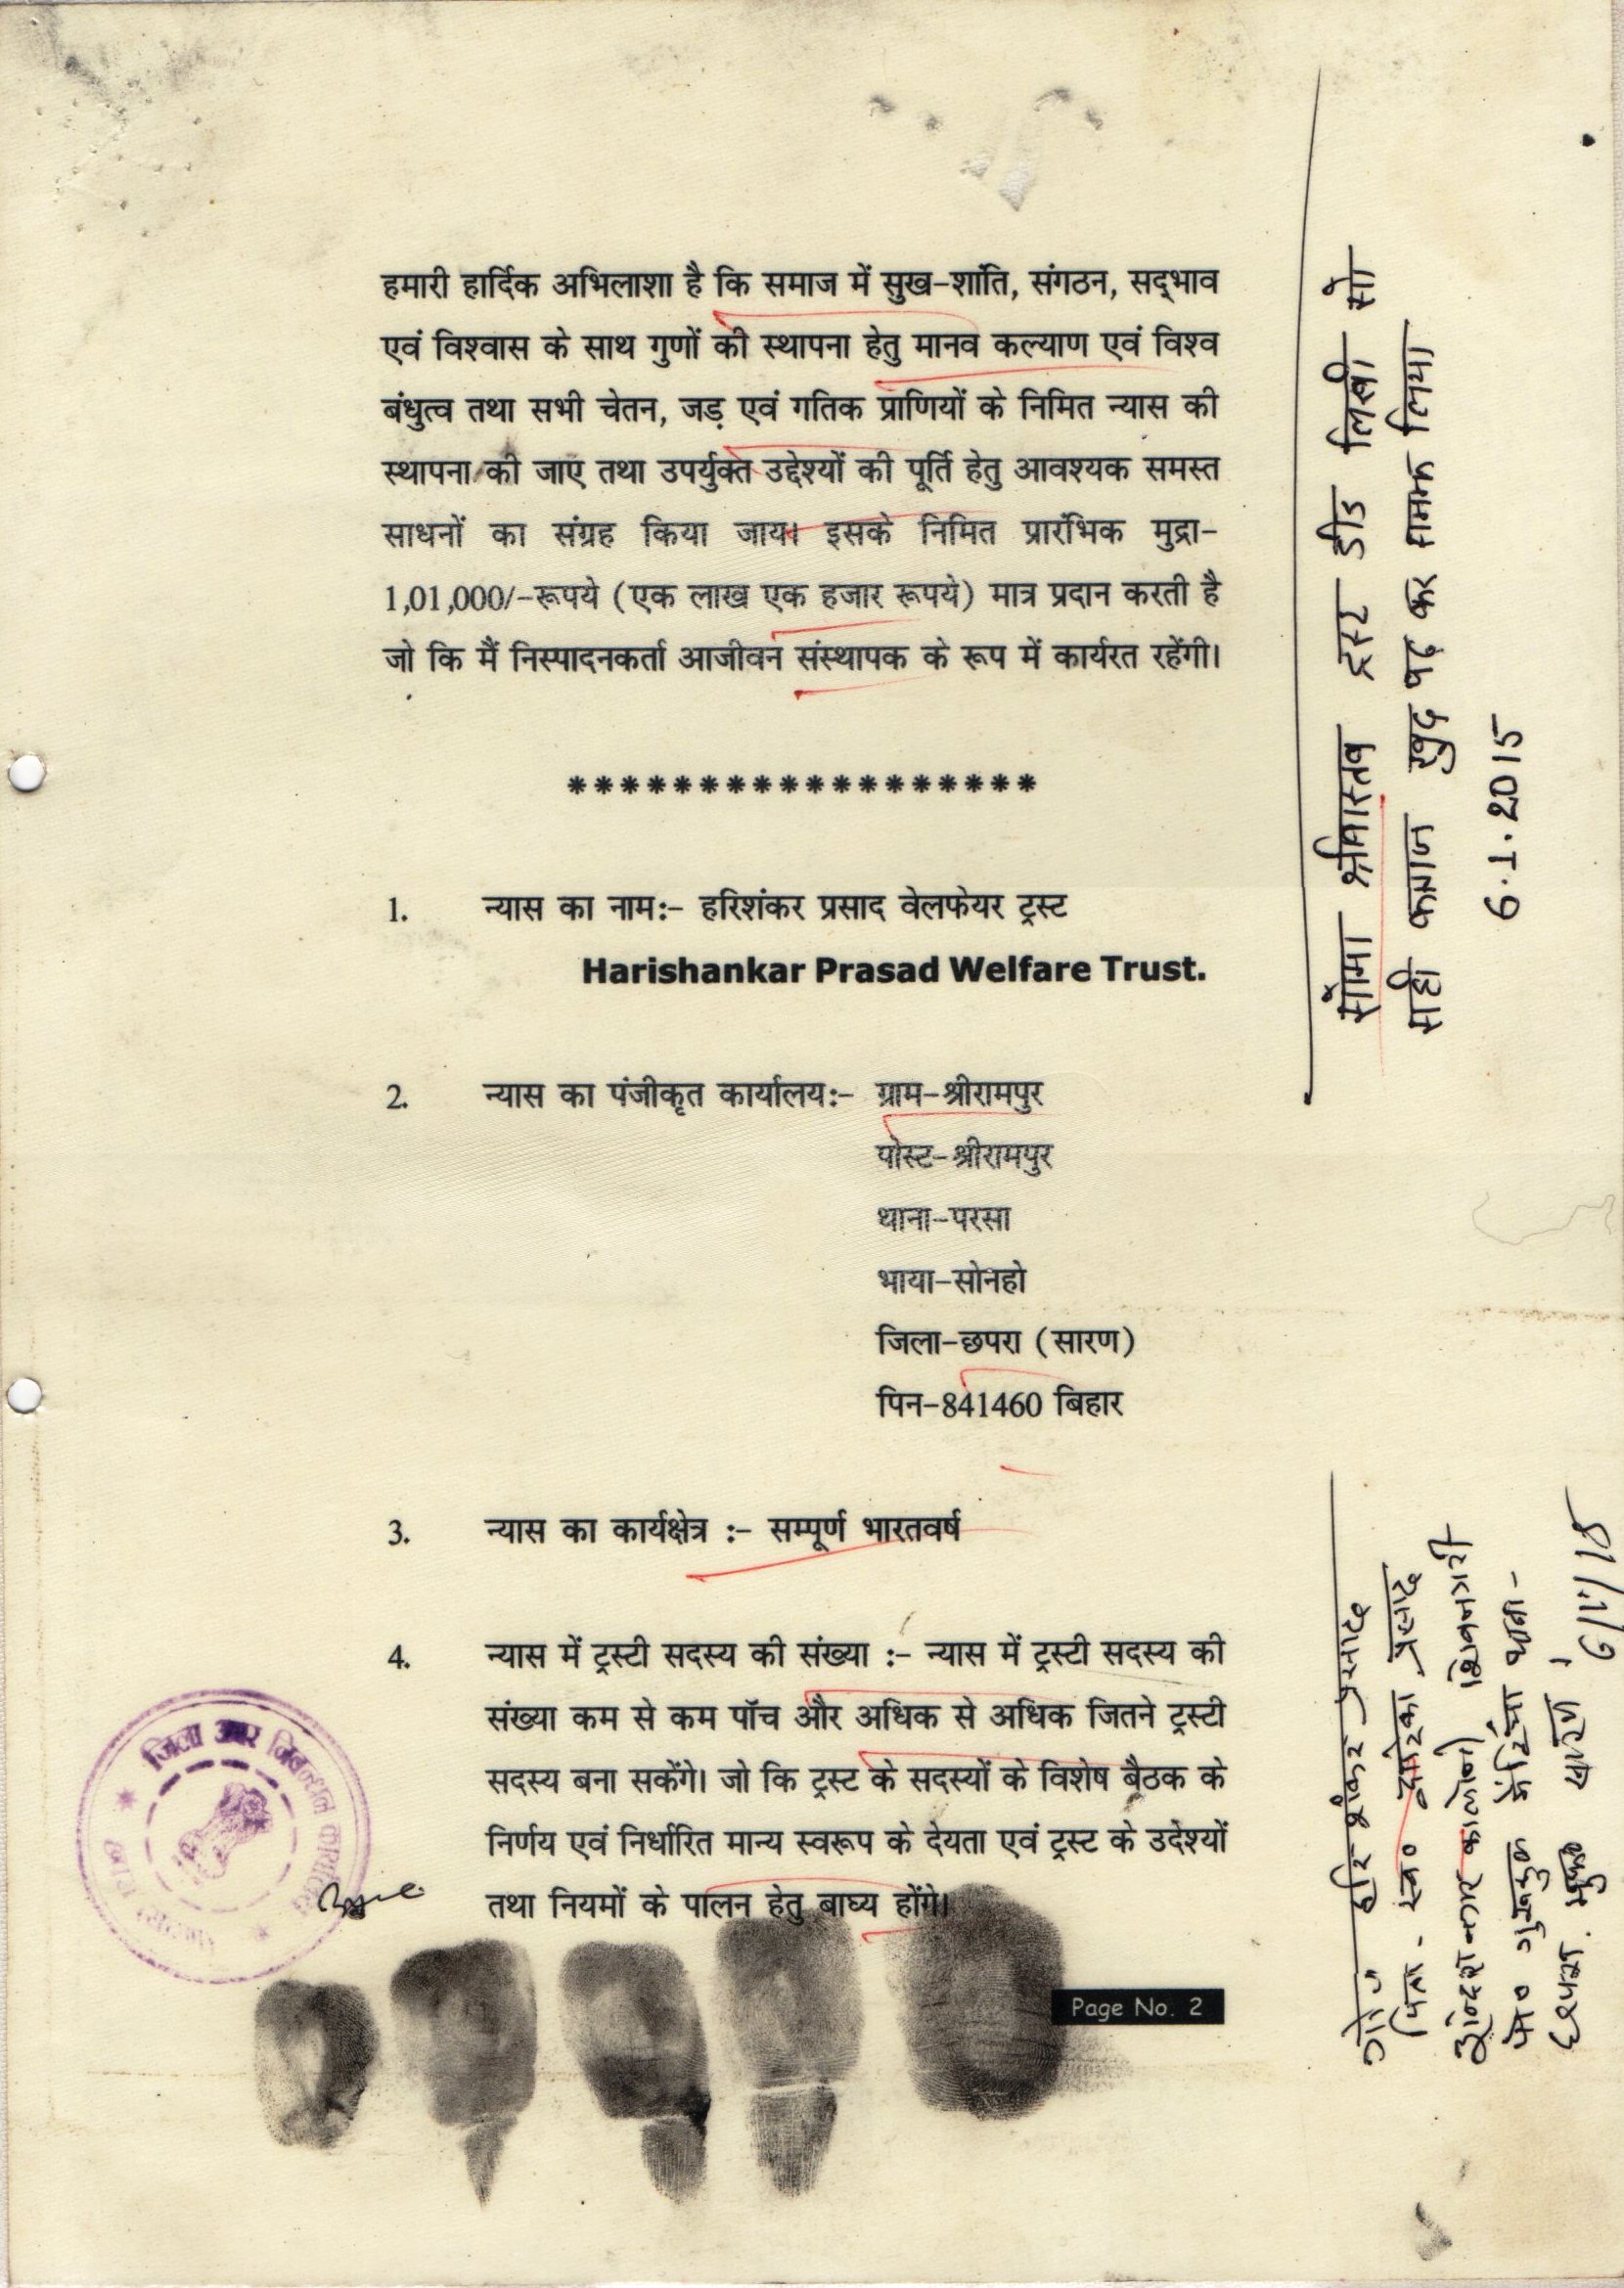 हमारी हार्दिक अभिलाशा है कि समाज में सुख-शांति, संगठन, सद्‌भाव
एवं विश्वास के साथ गुणों की स्थापना हेतु मानव कल्याण एवं विश्व
बंधुत्व तथा सभी चेतन, जड़ एवं गतिक प्राणियों के निमित न्यास की
स्थापना की जाए तथा उपर्युक्त उद्देश्यों की पूर्ति हेतु आवश्यक समस्त
साधनों का संग्रह किया जाय। इसके निमित प्रारंभिक मुद्रा-
1,01,000/-रूपये (एक लाख एक हजार रूपये) मात्र प्रदान करती है
जो कि मैं निस्पादनकर्ता आजीवन संस्थापक के रूप में कार्यरत रहेंगी।
******************
1. न्यास का नाम:- हरिशंकर प्रसाद वेलफेयर ट्रस्ट
Harishankar Prasad Welfare Trust.
2. न्यास का पंजीकृत कार्यालय:- ग्राम-श्रीरामपुर
पोस्ट-श्रीरामपुर
थाना-परसा
भाया-सोनहो
जिला-छपरा (सारण)
पिन-841460 बिहार
3. न्यास का कार्यक्षेत्र :- सम्पूर्ण भारतवर्ष
4. न्यास में ट्रस्टी सदस्य की संख्या :- न्यास में ट्रस्टी सदस्य की
संख्या कम से कम पॉच और अधिक से अधिक जितने ट्रस्टी
सदस्य बना सकेंगे। जो कि ट्रस्ट के सदस्यों के विशेष बैठक के
निर्णय एवं निर्धारित मान्य स्वरूप के देयता एवं ट्रस्ट के उदेश्यों
तथा नियमों के पालन हेतु बाघ्य होंगे।
Page No. 2
जिला अवर निबन्धन कार्यालय
श्रीवास्तव ट्रस्ट डीड लिखी सो
सही खुद पढ़ कर समझ लिया
6.1.2015
हरि शंकर प्रसाद
पिता - स्व० द्वारिका प्रसाद
शिवनगरी
थाना -
छपरा सारण
6/1/15